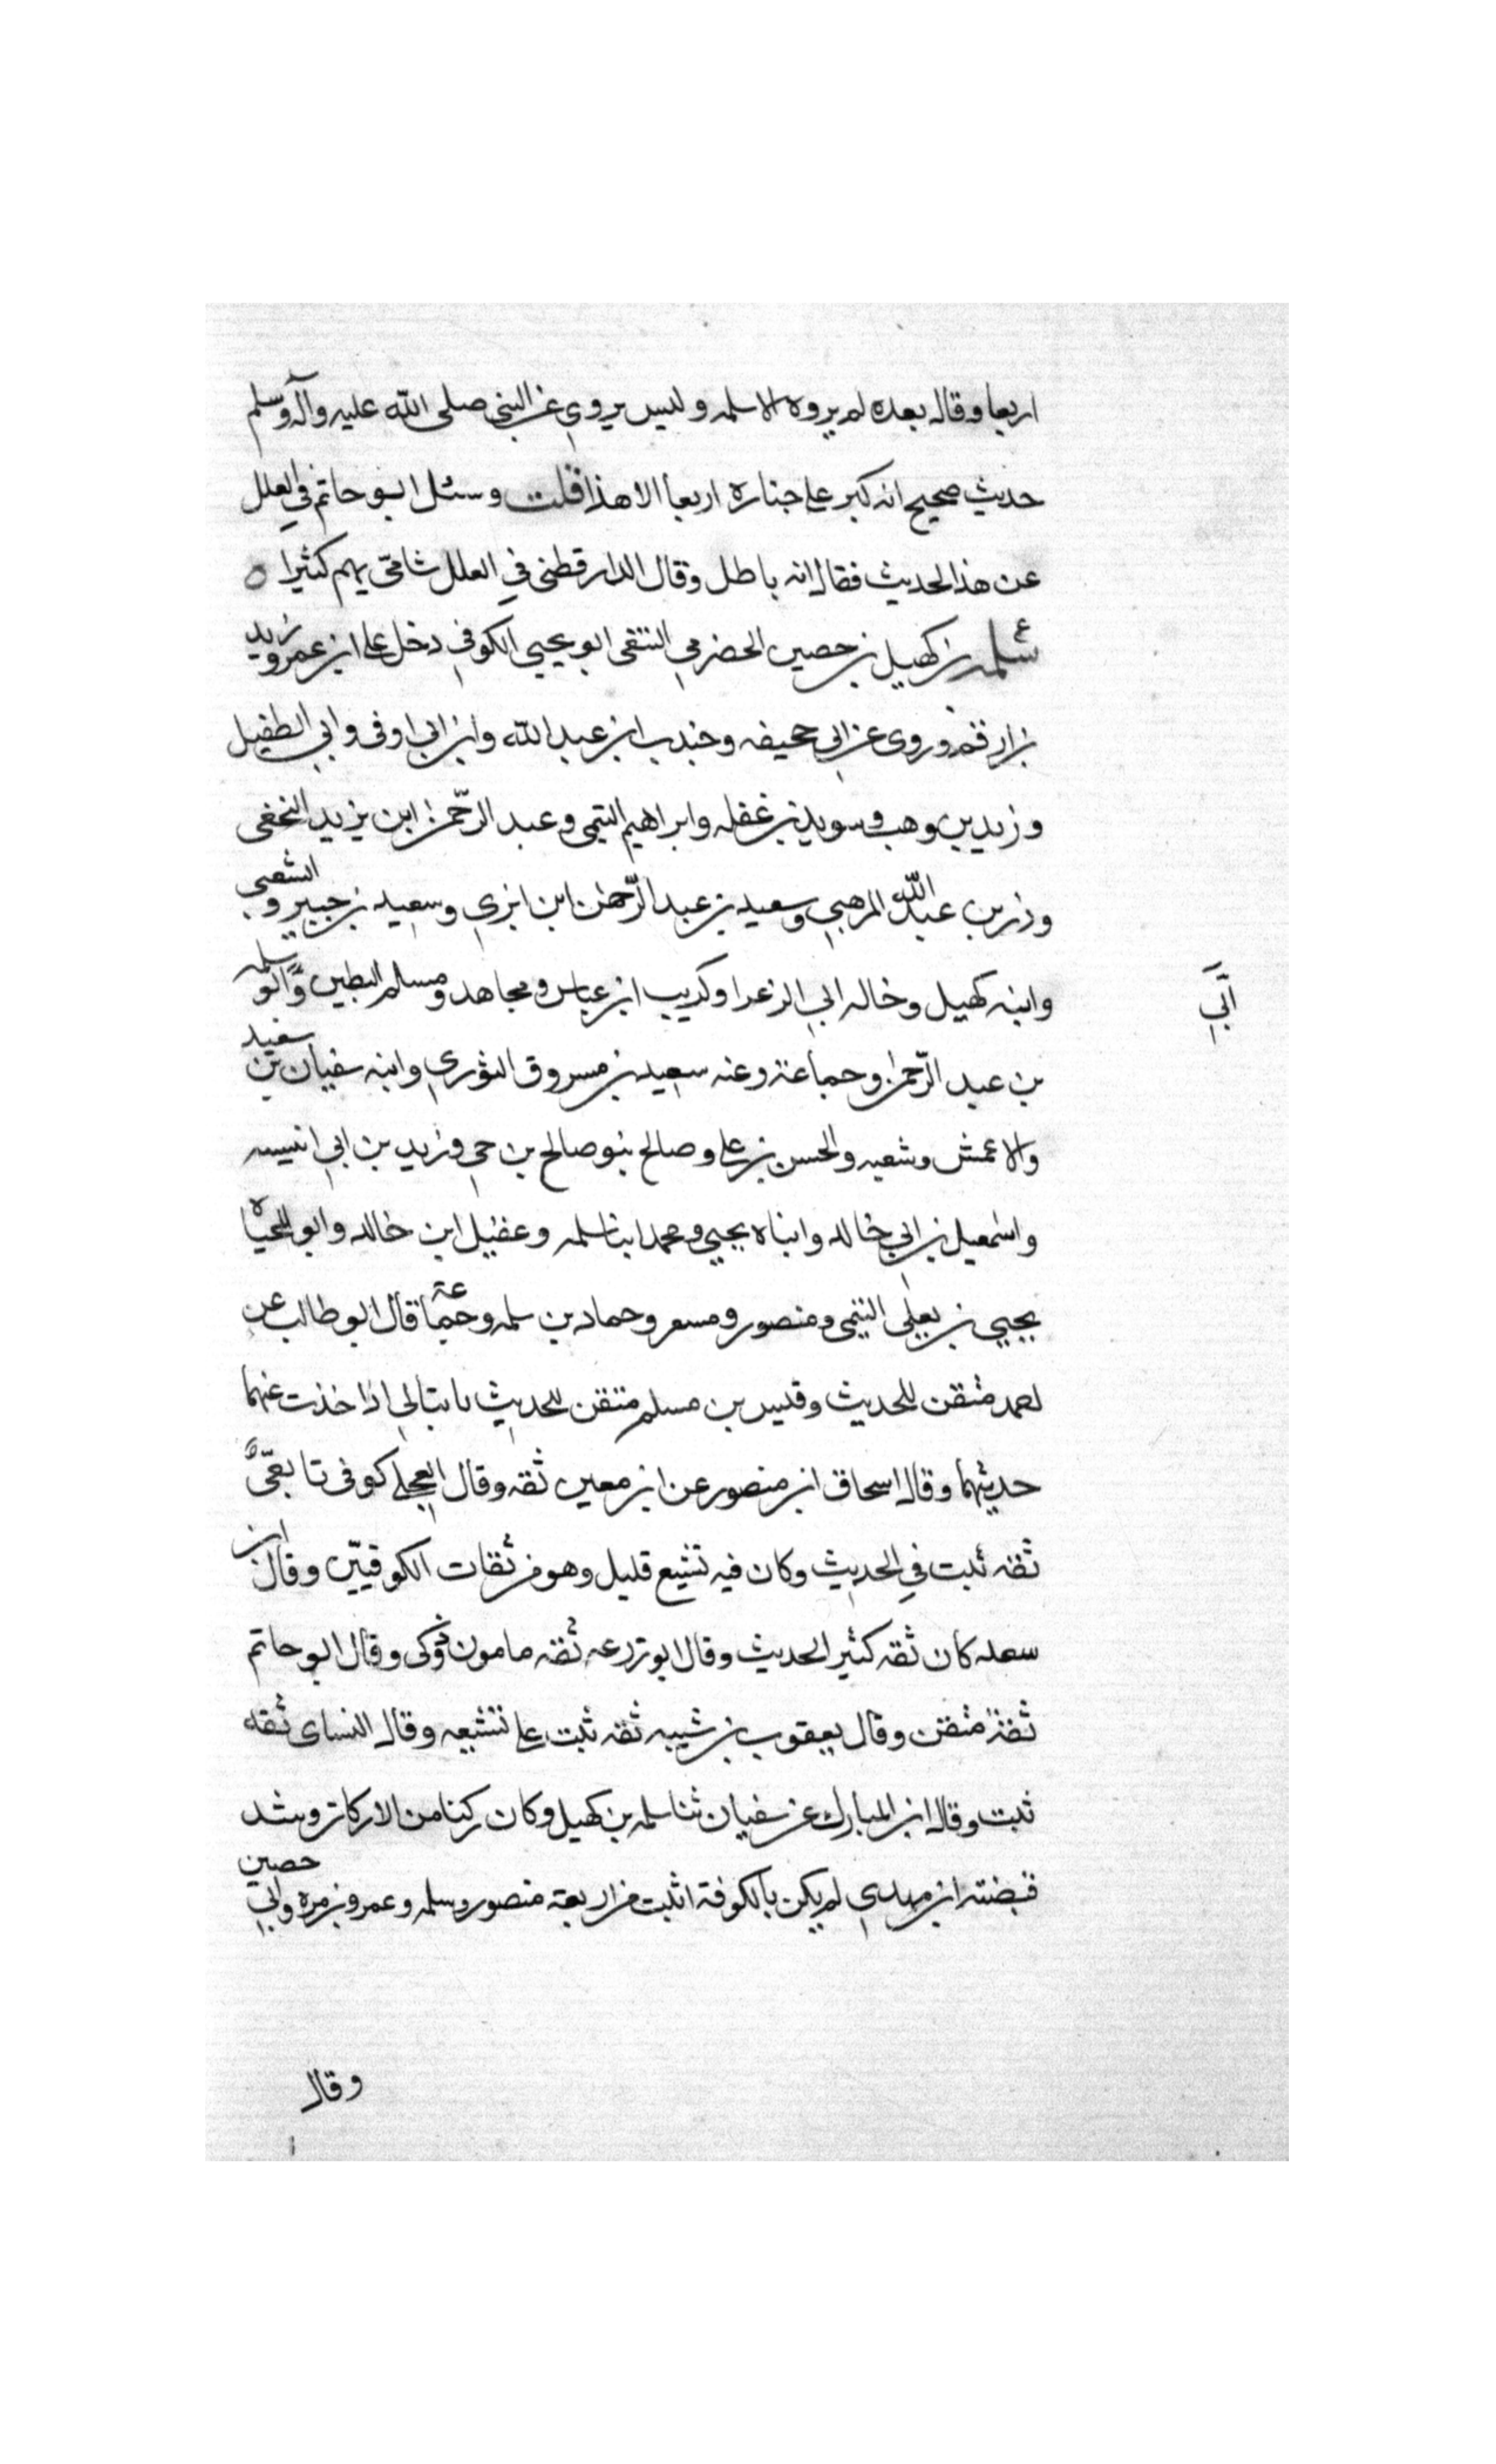 اربعا وقال بعده لم يروه الا سلمه وليس يروي عن النبي صلى الله عليه وآله وسلم
حديث صحيح انه كبر على جنازه اربعا الا هذا قلت وسئل ابو حاتم في العلل
عن هذا الحديث فقال انه باطل وقال الدارقطني في العلل شامي يهم كثيرا ه
ع سلمه بن كهيل بن حصين الحضرمي التنعي ابو يحيى الكوفي دخل على ابن عمر وزيد
بن ارقم وروى عن ابي جحيفه وجندب ابن عبد الله وابن ابي اوفى وابي الطفيل
وزيد بن وهب وسويد بن غفله وابراهيم التيمي وعبد الرحمن ابن يزيد النخعي
وذر بن عبد الله المرهبي وسعيد بن عبد الرحمن ابن ابزي وسعيد بن جبير والشعبي
وابنه كهيل وخاله ابي الزعرا وكريب ابن عباس ومجاهد ومسلم البطين وابو سلمه
ابي
بن عبد الرحمن وجماعة وعنه سعيد بن مسروق الثوري وابنه سفيان بن سعيد
والاعمش وشعبه والحسن بن علي وصالح بنو صالح بن حي وزيد بن ابي انيسه
واسمعيل بن ابي خالد وابناه يحيى ومحمد ابنا سلمه وعقيل ابن خالد وابو المحياه
يحيى بن يعلى التيمي ومنصور ومسعر وحماد بن سلمه وجماعة قال ابو طالب عن
احمد متقن للحديث وقيس بن مسلم متقن للحديث ما تبالي اذا اخذت عنهما
حديثهما وقال اسحاق ابن منصور عن ابن معين ثقه وقال العجلي كوفى تابعيٌّ
ثقه ثبت في الحديث وكان فيه تشيع قليل وهو من ثقات الكوفيين وقال ابن
سعد كان ثقه كثير الحديث وقال ابو زرعه ثقه مامون ذكى وقال ابو حاتم
ثقة متقن وقال يعقوب بن شيبه ثقه ثبت على تشيعه وقال النساى ثقه
ثبت وقال ابن المبارك عن سفيان ثنا سلمه بن كهيل وكان ركنا من الاركان وشد
قبضته ابن مهدي لم يكن بالكوفة اثبت من اربعة منصور وسلمه وعمرو بن مره وابي حصين
وقال